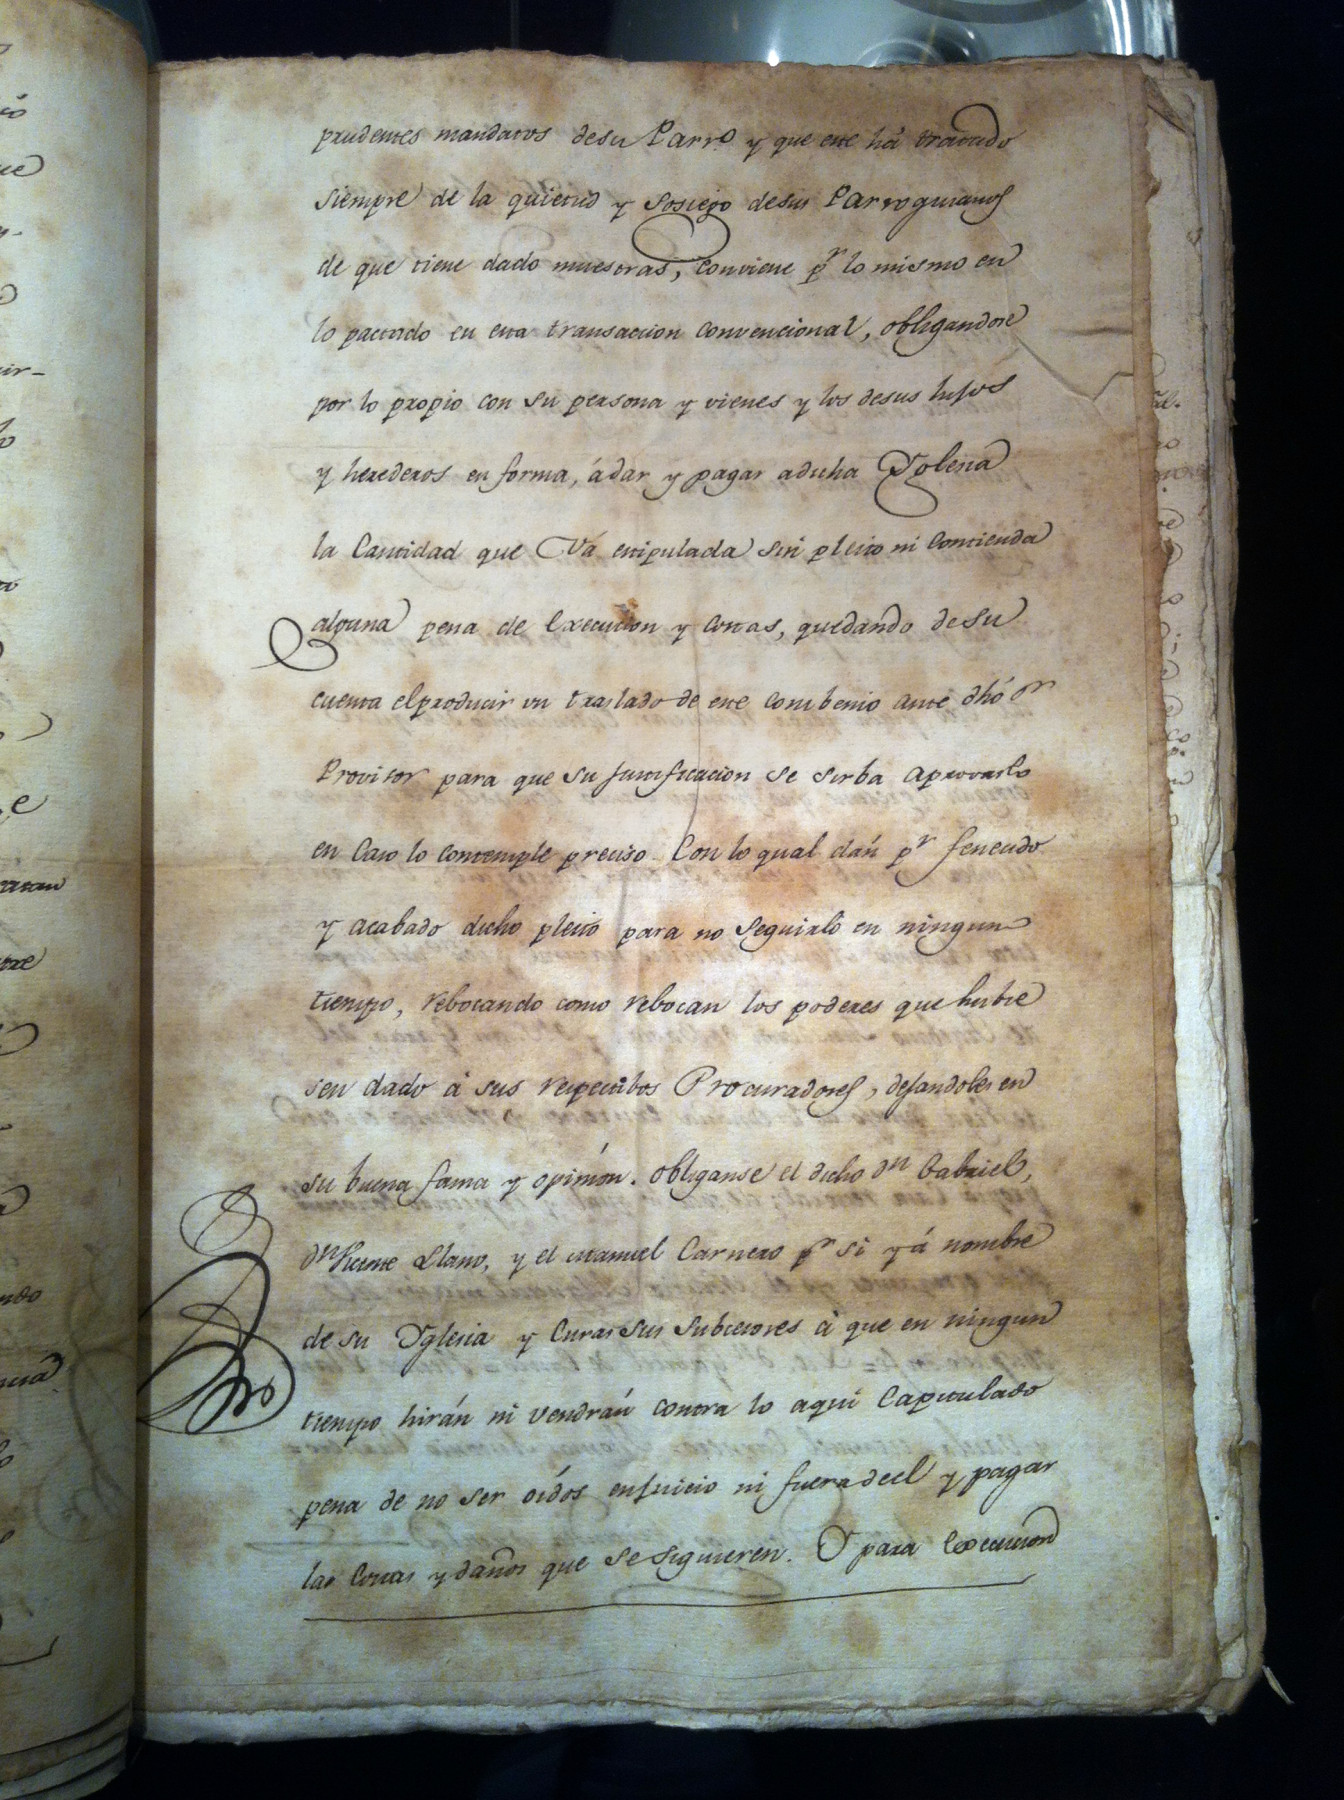 prudentes mandatos desu Parr.o y que este há tratado
siempre de la quietud y sosiego desus Parroquianos
de que tiene dado muestras, conviene pr lo mismo en
lo pactado en esta transaccion convencional, obligandose
por lo propio con su persona y vienes y los desus hijos
y herederos en forma, ádar y pagar adicha Yglesia
la Cantidad que Vá estipulada sin pleito ni Contienda
alguna pena de Execucion y Costas, quedando de su
cuenta elproducir un traslado de este combenio ante dhó Sr
Provisor para que su justificacion se sirba aprovarlo
en Caso lo contemple preciso. Con lo qual dán pr fenecido
y acabado dicho pleito para no seguirlo en ningun
tiempo, rebocando como rebocan los poderes que hubie
sen dado á sus respectibos Procuradores, dejandoles en
su buena fama y opinión. obliganse el dicho Dn Gabriel,
Dn Vicente Llano, y el Manuel Carnero pr si y á nombre
de su Yglesia y Curas sus subcesores á que en ningun
tiempo hirán ni vendrán contra lo aqui Capitulado
pena de no ser oídos enjuicio ni fuera deel y pagar
las Costas y daños que se siguieren. Y para Execucion